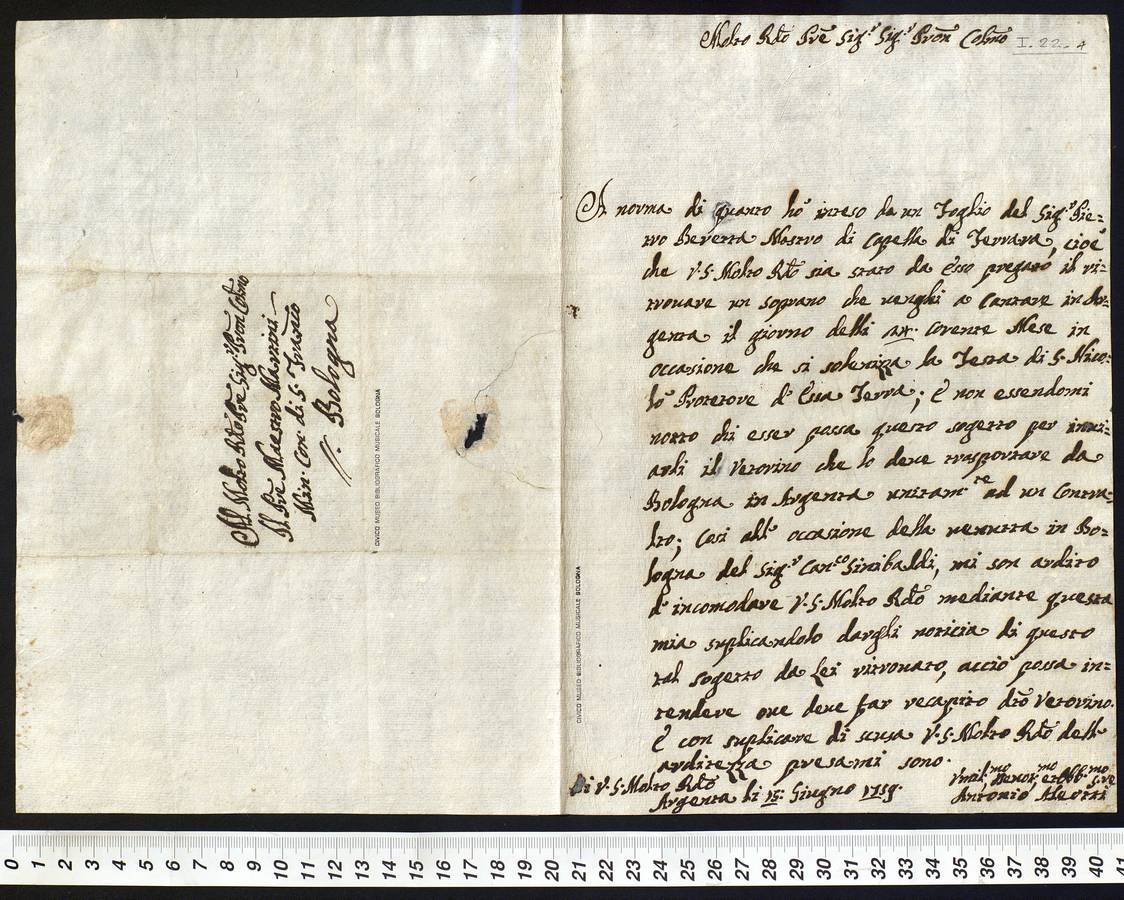 Al Molto Rdo Pre Sigr Pron Colmo
Il Pre Maestro Martini
Min: Con: di S: Franco
Bologna
CIVICO MUSEO BIBLIOGRAFICO MUSICALE BOLOGNA
Molto Rdo Pre Sigr Sigr Pron Colmo
I. 22. 4
A norma di quanto hò inteso da un Foglio del Sigr Pie=
tro Beretta Mastro di Capella di Ferrara, cioè
che V.S. Molto Rdo sia stato da esso pregato il ri=
trovare un soprano che venghi a Cantare in Ar=
genta il giorno delli corente Mese in
occasione che si soleniza la Festa di S. Nico=
lò Protetore d'Essa Terra; è non essendomi
notto chi esser possa questo sogetto per invi=
arli il Vetorino che lo deve trasportare da
Bologna in Argenta unitamte ad un Contra=
lto; Così all' occasione della venutta in Bo=
logna del Sigr Canco Sinibaldi, mi son ardito
d'incomodare V.S. Molto Rdo mediante questa
mia suplicandolo dargli noticia di questo
tal sogetto da Lei ritrovato, acciò possa in=
tendere ove deve far recapito dto Vetorino.
è con suplicare di scusa V.S. Molto Rdo dell'
arditezza presami sono.
Di V.S. Molto Rdo
Argenta li 15: Giugno 1759.
Umilmo Devotmo et Obbmo Sre
Antonio
CIVICO MUSEO BIBLIOGRAFICO MUSICALE BOLOGNA
0 1 2 3 4 5 6 7 8 9 10 11 12 13 14 15 16 17 18 19 20 21 22 23 24 25 26 27 28 29 30 31 32 33 34 35 36 37 38 39 40 41